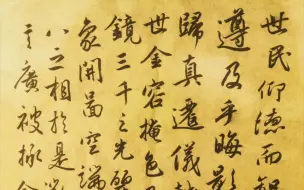 世民仰德而知
遵及乎晦影
歸真遷儀越
世金容掩色
鏡三千之光麗
象開圖空端
八之相於是微
言廣被拯含